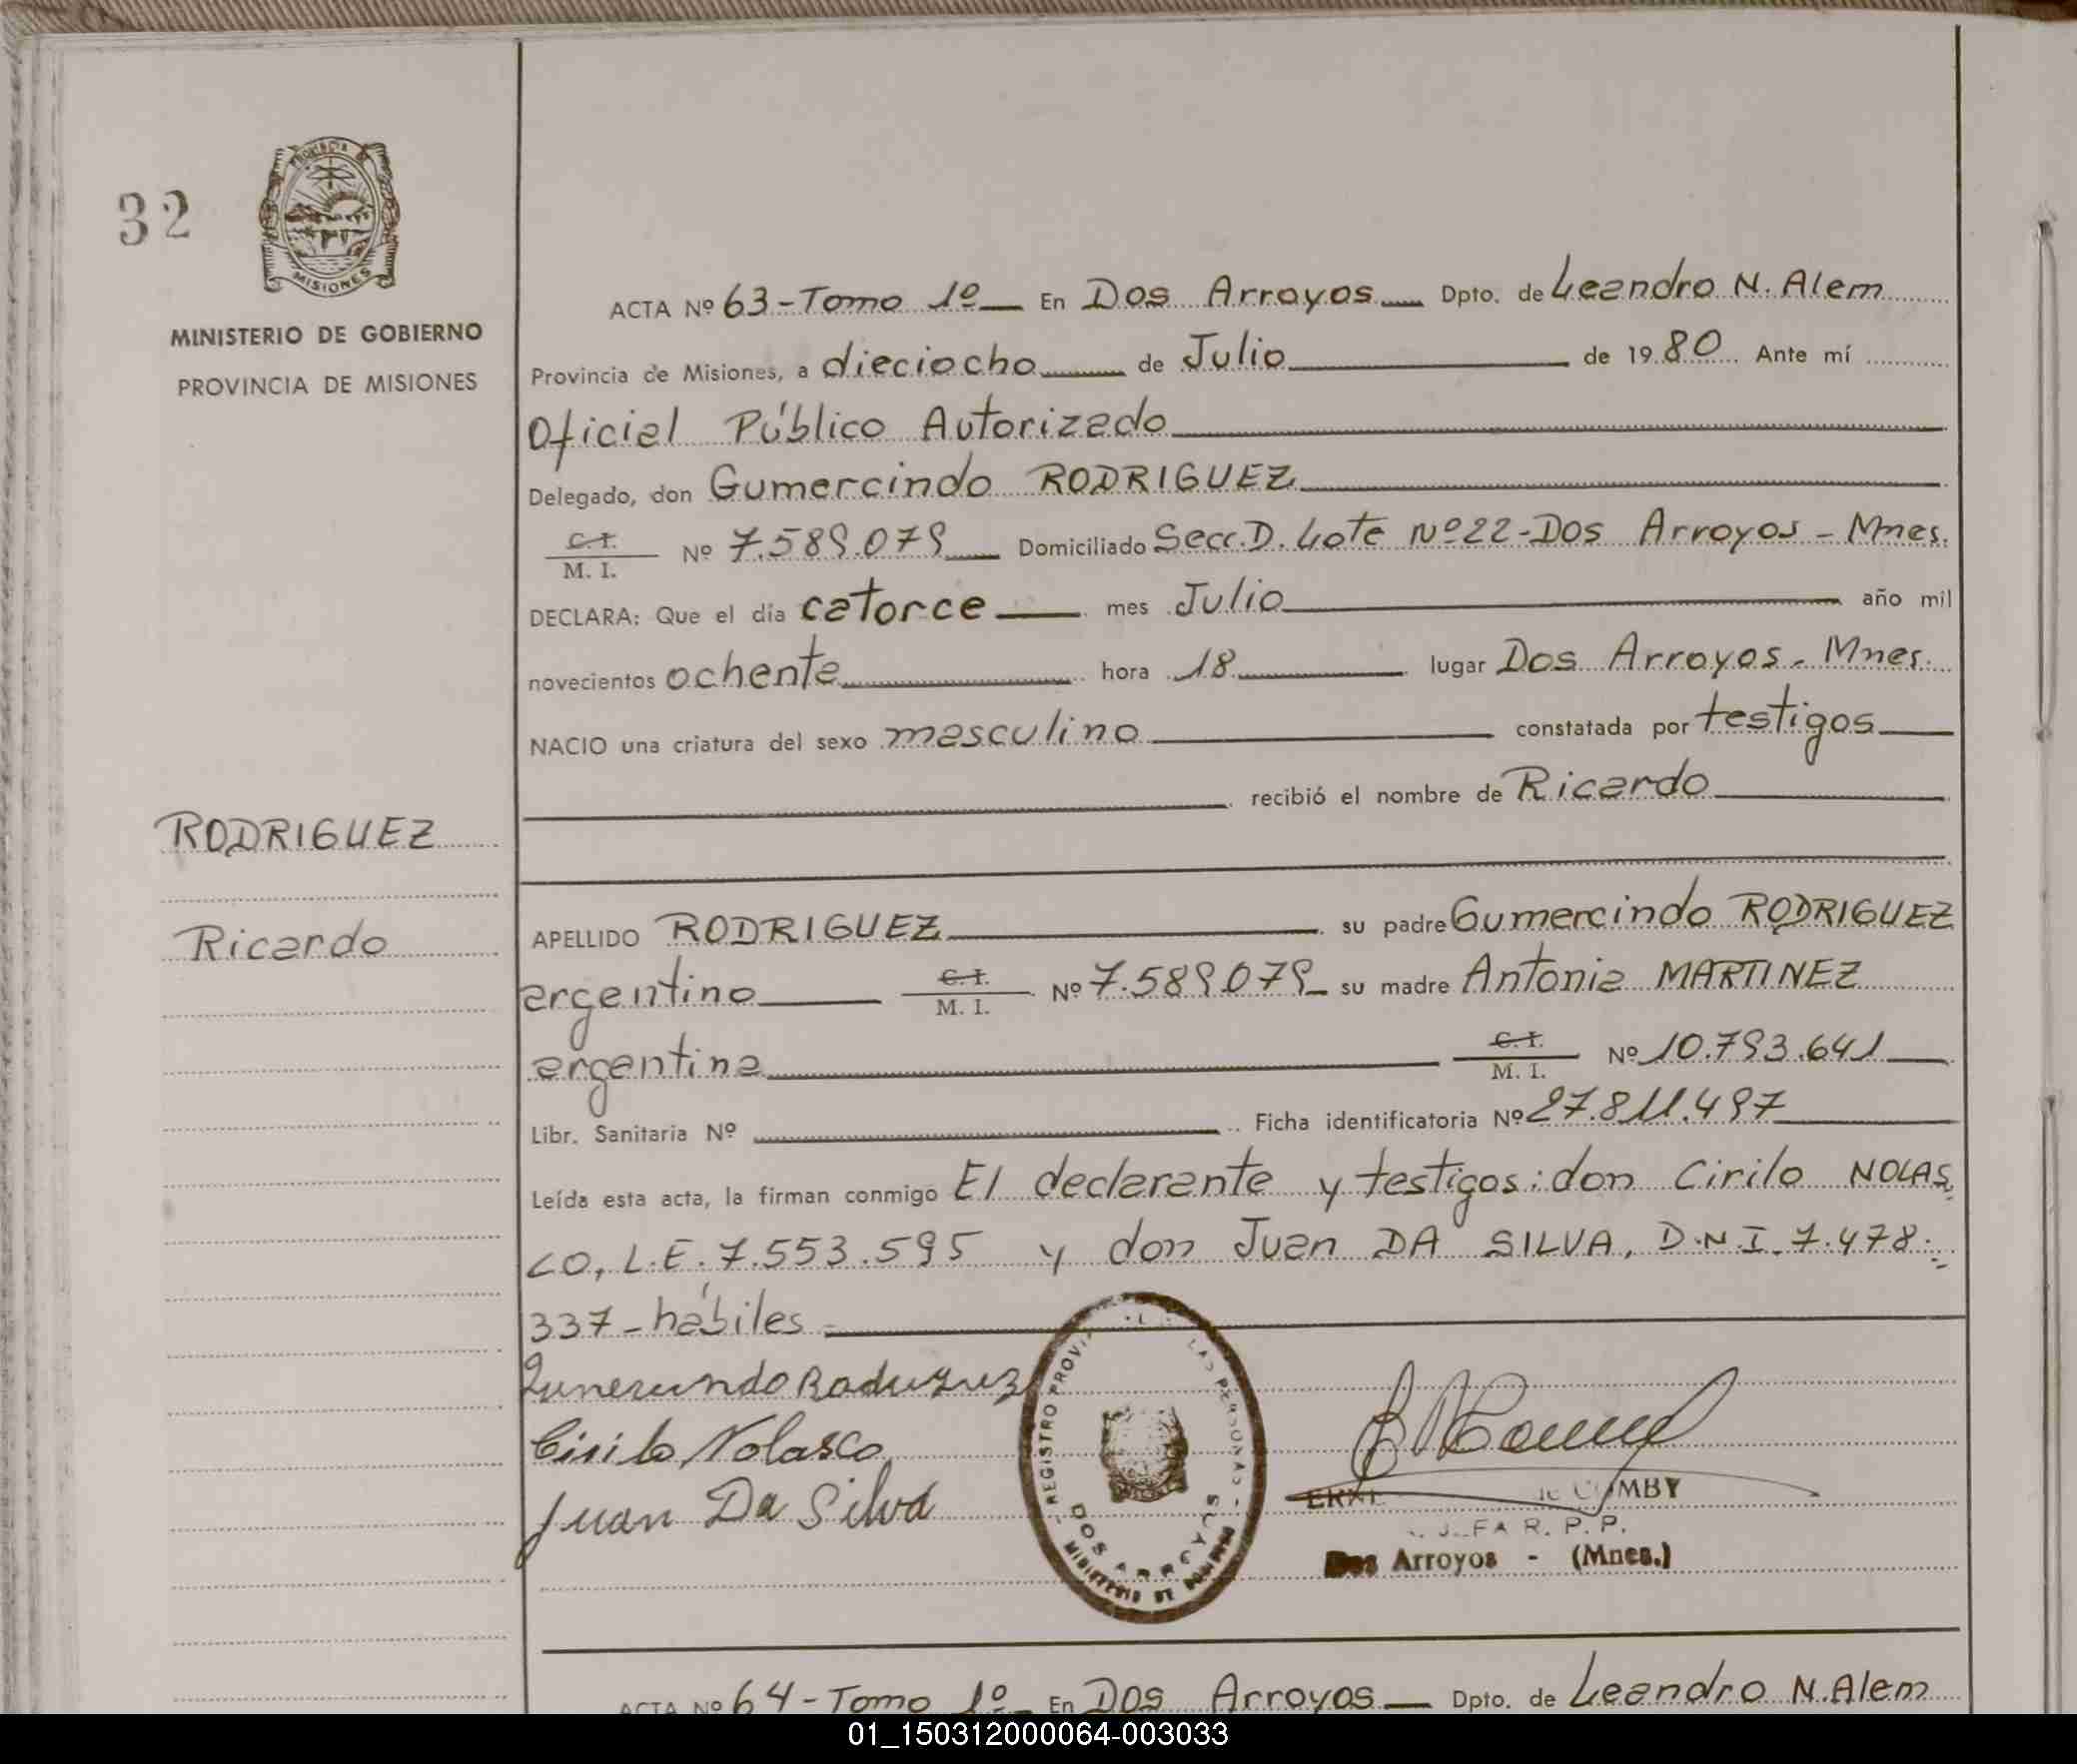 32
PROVINCIA DE MISIONES
MINISTERIO DE GOBIERNO
PROVINCIA DE MISIONES
RODRIGUEZ
Ricardo
ACTA Nº 63 - Tomo 1º En Dos Arroyos Dpto. de Leandro N. Alem
Provincia de Misiones, a dieciocho de Julio de 1980 Ante mí
Oficial Público Autorizado
Delegado, don Gumercindo RODRIGUEZ
C.I.
M. I. Nº 7.589.079 Domiciliado Secc. D. Lote Nº 22 - Dos Arroyos - Mnes.
DECLARA: Que el día catorce mes Julio año mil
novecientos ochenta hora 18 lugar Dos Arroyos - Mnes.
NACIO una criatura del sexo masculino constatada por testigos
recibió el nombre de Ricardo
APELLIDO RODRIGUEZ su padre Gumercindo RODRIGUEZ
argentino C.I. M. I. Nº 7.589.079 su madre Antonia MARTINEZ
argentina C.I. M. I. Nº 10.793.641
Libr. Sanitaria Nº Ficha identificatoria Nº 27.811.497
Leída esta acta, la firman conmigo El declarante y testigos: don Cirilo NOLAS
CO, L.E. 7.553.595 y don Juan DA SILVA, D.N.I. 7.478.
337 - hábiles
Cirilo Nolasco
Juan Da Silva
REGISTRO PROV. LAS PERSONAS
DOS ARROYOS
MINISTERIO DE GOBIERNO
MBY
R. P. P.
Dos Arroyos - (Mnes.)
ACTA Nº 64 - Tomo 1º En Dos Arroyos Dpto. de Leandro N. Alem
01_150312000064-003033